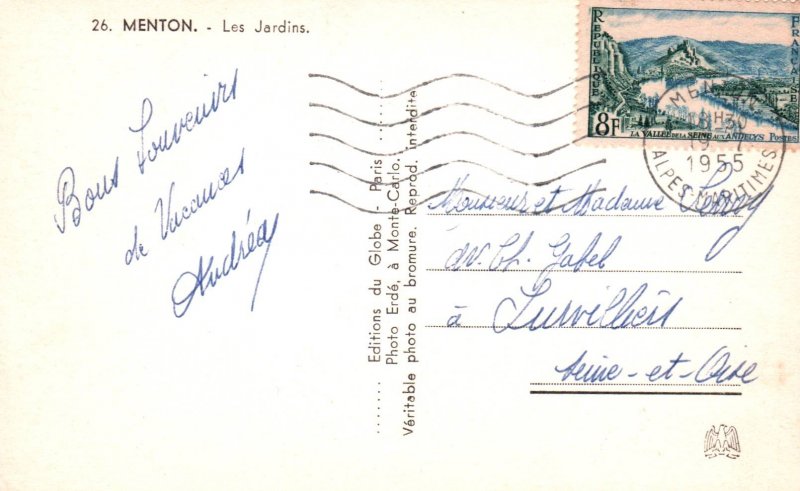 26. MENTON. - Les Jardins.
Bons Souvenirs
de Vacances
Andréa
Editions du Globe - Paris
Photo Erdé, à Monte-Carlo.
Véritable photo au bromure. Reprod. interdite
REPUBLIQUE FRANCAISE
8F
LA VALLEE DE LA SEINE AUX ANDELYS POSTES
MENTON
1955
ALPES-MARITIMES
Monsieur et Madame Leroy
av. Ch. Gabel
à Survilliers
Seine-et-Oise